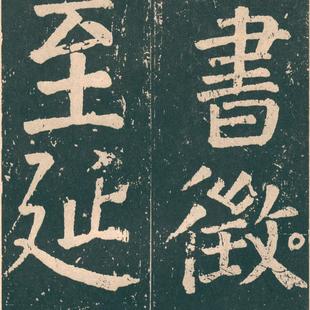 書徵
至延